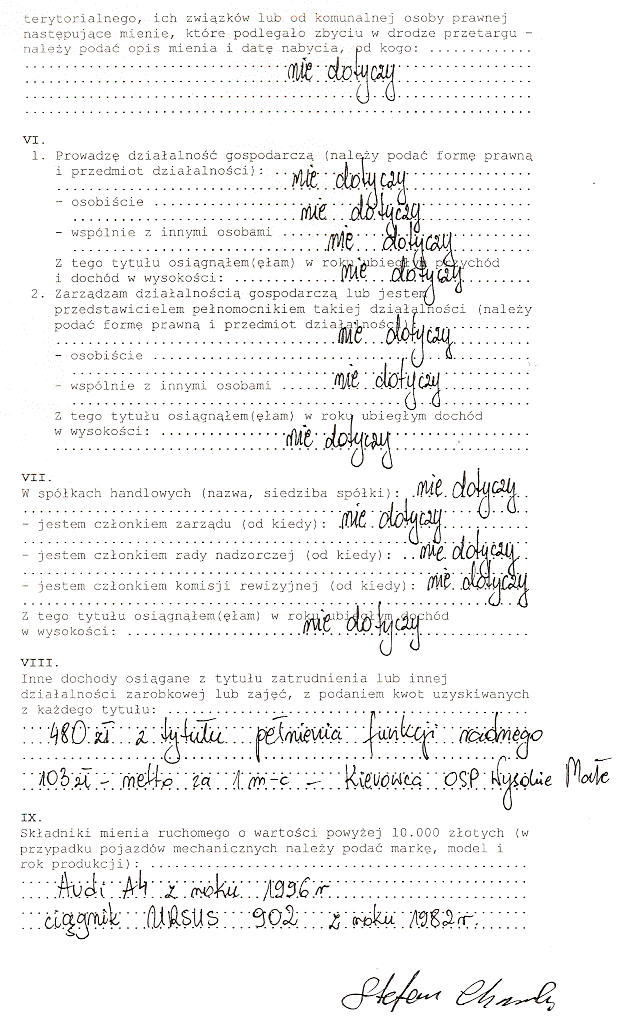 terytorialnego, ich związków lub od komunalnej osoby prawnej
następujące mienie, które podlegało zbyciu w drodze przetargu -
należy podać opis mienia i datę nabycia, od kogo: ............
nie dotyczy
VI.
1. Prowadzę działalność gospodarczą (należy podać formę prawną
i przedmiot działalności): nie dotyczy
- osobiście nie dotyczy
- wspólnie z innymi osobami nie dotyczy
Z tego tytułu osiągnąłem(ęłam) w roku ubiegłym przychód
i dochód w wysokości: nie dotyczy
2. Zarządzam działalnością gospodarczą lub jestem
przedstawicielem pełnomocnikiem takiej działalności (należy
podać formę prawną i przedmiot działalności) nie dotyczy
- osobiście
- wspólnie z innymi osobami nie dotyczy
Z tego tytułu osiągnąłem(ęłam) w roku ubiegłym dochód
w wysokości: nie dotyczy
VII.
W spółkach handlowych (nazwa, siedziba spółki): nie dotyczy
- jestem członkiem zarządu (od kiedy): nie dotyczy
- jestem członkiem rady nadzorczej (od kiedy): nie dotyczy
- jestem członkiem komisji rewizyjnej (od kiedy): nie dotyczy
Z tego tytułu osiągnąłem(ęłam) w roku ubiegłym dochód
w wysokości: nie dotyczy
VIII.
Inne dochody osiągane z tytułu zatrudnienia lub innej
działalności zarobkowej lub zajęć, z podaniem kwot uzyskiwanych
z każdego tytułu:
480 zł z tytułu pełnienia funkcji radnego
103 zł - netto za 1 m-c - Kierowca OSP Wysokie Małe
IX.
Składniki mienia ruchomego o wartości powyżej 10.000 złotych (w
przypadku pojazdów mechanicznych należy podać markę, model i
rok produkcji):
Audi A4 z roku 1996 r
ciągnik URSUS 902 z roku 1982 r.
Stefan